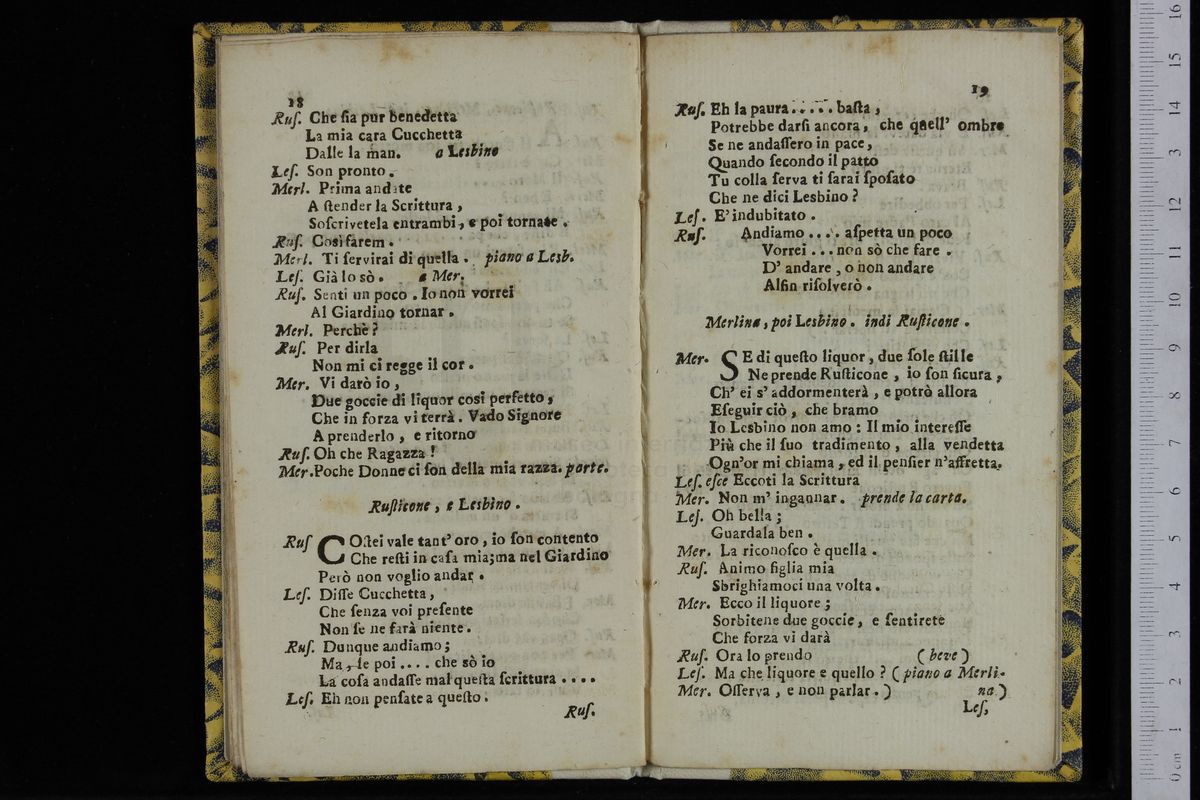 18
Ruſ. Che ſia pur benedetta
La mia cara Cucchetta
Dalle la man. a Lesbino
Leſ. Son pronto.
Merl. Prima andate
A ſtender la Scrittura,
Soſcrivetela entrambi, e poi tornate.
Ruſ. Così farem.
Merl. Ti ſervirai di quella. piano a Lesb.
Leſ. Già lo sò. a Mer.
Ruſ. Senti un poco. Io non vorrei
Al Giardino tornar.
Merl. Perchè?
Ruſ. Per dirla
Non mi ci regge il cor.
Mer. Vi darò io,
Due goccie di liquor così perfetto,
Che in forza vi terrà. Vado Signore
A prenderlo, e ritorno
Ruſ. Oh che Ragazza!
Mer. Poche Donne ci ſon della mia razza. parte.
Ruſticone, e Lesbino.
Ruſ COſtei vale tant' oro, io ſon contento
Che reſti in caſa mia; ma nel Giardino
Però non voglio andar.
Leſ. Diſſe Cucchetta,
Che ſenza voi preſente
Non ſe ne farà niente.
Ruſ. Dunque andiamo;
Ma, ſe poi .... che sò io
La coſa andaſſe mal queſta ſcrittura ....
Leſ. Eh non penſate a queſto.
Ruſ.
19
Ruſ. Eh la paura ..... baſta,
Potrebbe darſi ancora, che quell' ombre
Se ne andaſſero in pace,
Quando ſecondo il patto
Tu colla ſerva ti ſarai ſpoſato
Che ne dici Lesbino?
Leſ. E' indubitato.
Ruſ. Andiamo .... aſpetta un poco
Vorrei ... non sò che fare.
D' andare, o non andare
Alfin riſolverò.
Merlina, poi Lesbino. indi Ruſticone.
Mer. SE di queſto liquor, due ſole ſtille
Ne prende Ruſticone, io ſon ſicura,
Ch' ei s' addormenterà, e potrò allora
Eſeguir ciò, che bramo
Io Lesbino non amo: Il mio intereſſe
Più che il ſuo tradimento, alla vendetta
Ogn'or mi chiama, ed il penſier n'affretta.
Leſ. eſce Eccoti la Scrittura
Mer. Non m' ingannar. prende la carta.
Leſ. Oh bella;
Guardala ben.
Mer. La riconoſco è quella.
Ruſ. Animo figlia mia
Sbrighiamoci una volta.
Mer. Ecco il liquore;
Sorbitene due goccie, e ſentirete
Che forza vi darà
Ruſ. Ora lo prendo (beve)
Leſ. Ma che liquore e quello? (piano a Merli-
Mer. Oſſerva, e non parlar.) na)
Leſ,